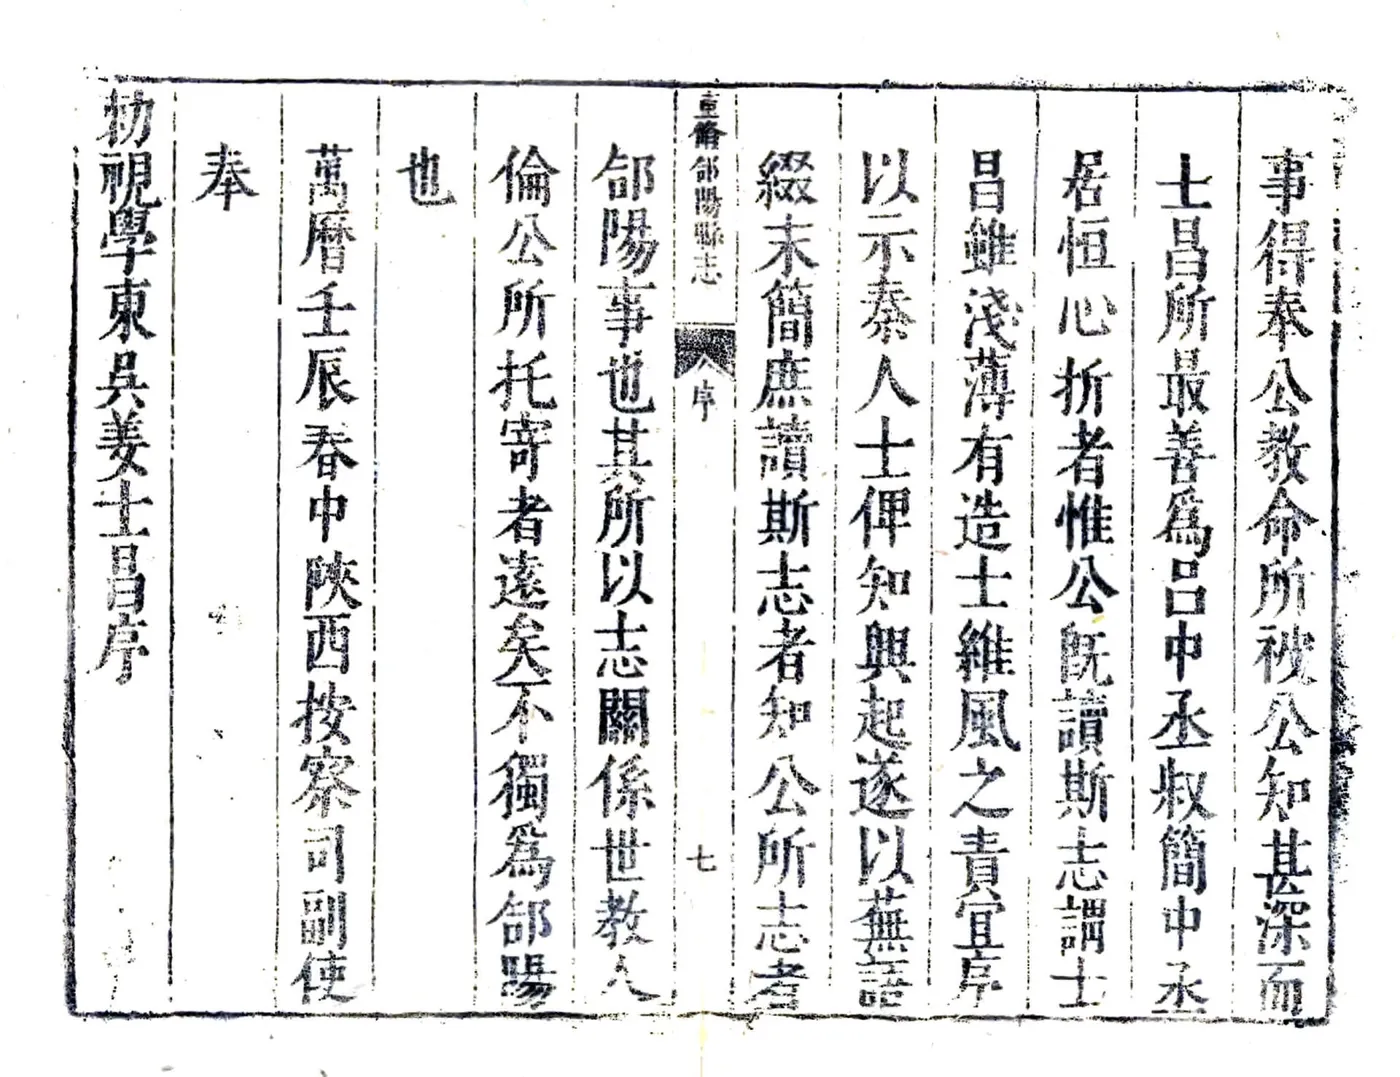 事得奉公教命所被公知甚深而
士昌所最善爲吕中丞叔簡中丞
居恒心折者惟公既讀斯志謂士
昌雖淺薄有造士維風之責宜序
以示秦人士俾知興起遂以蕪語
綴末簡庶讀斯志者知公所志者
重脩郃陽縣志
序
七
郃陽事也其所以志關係世教人
倫公所托寄者遠矣不獨爲郃陽
也
萬曆壬辰春中陝西按察司副使
奉
勑視學東吳姜士昌序